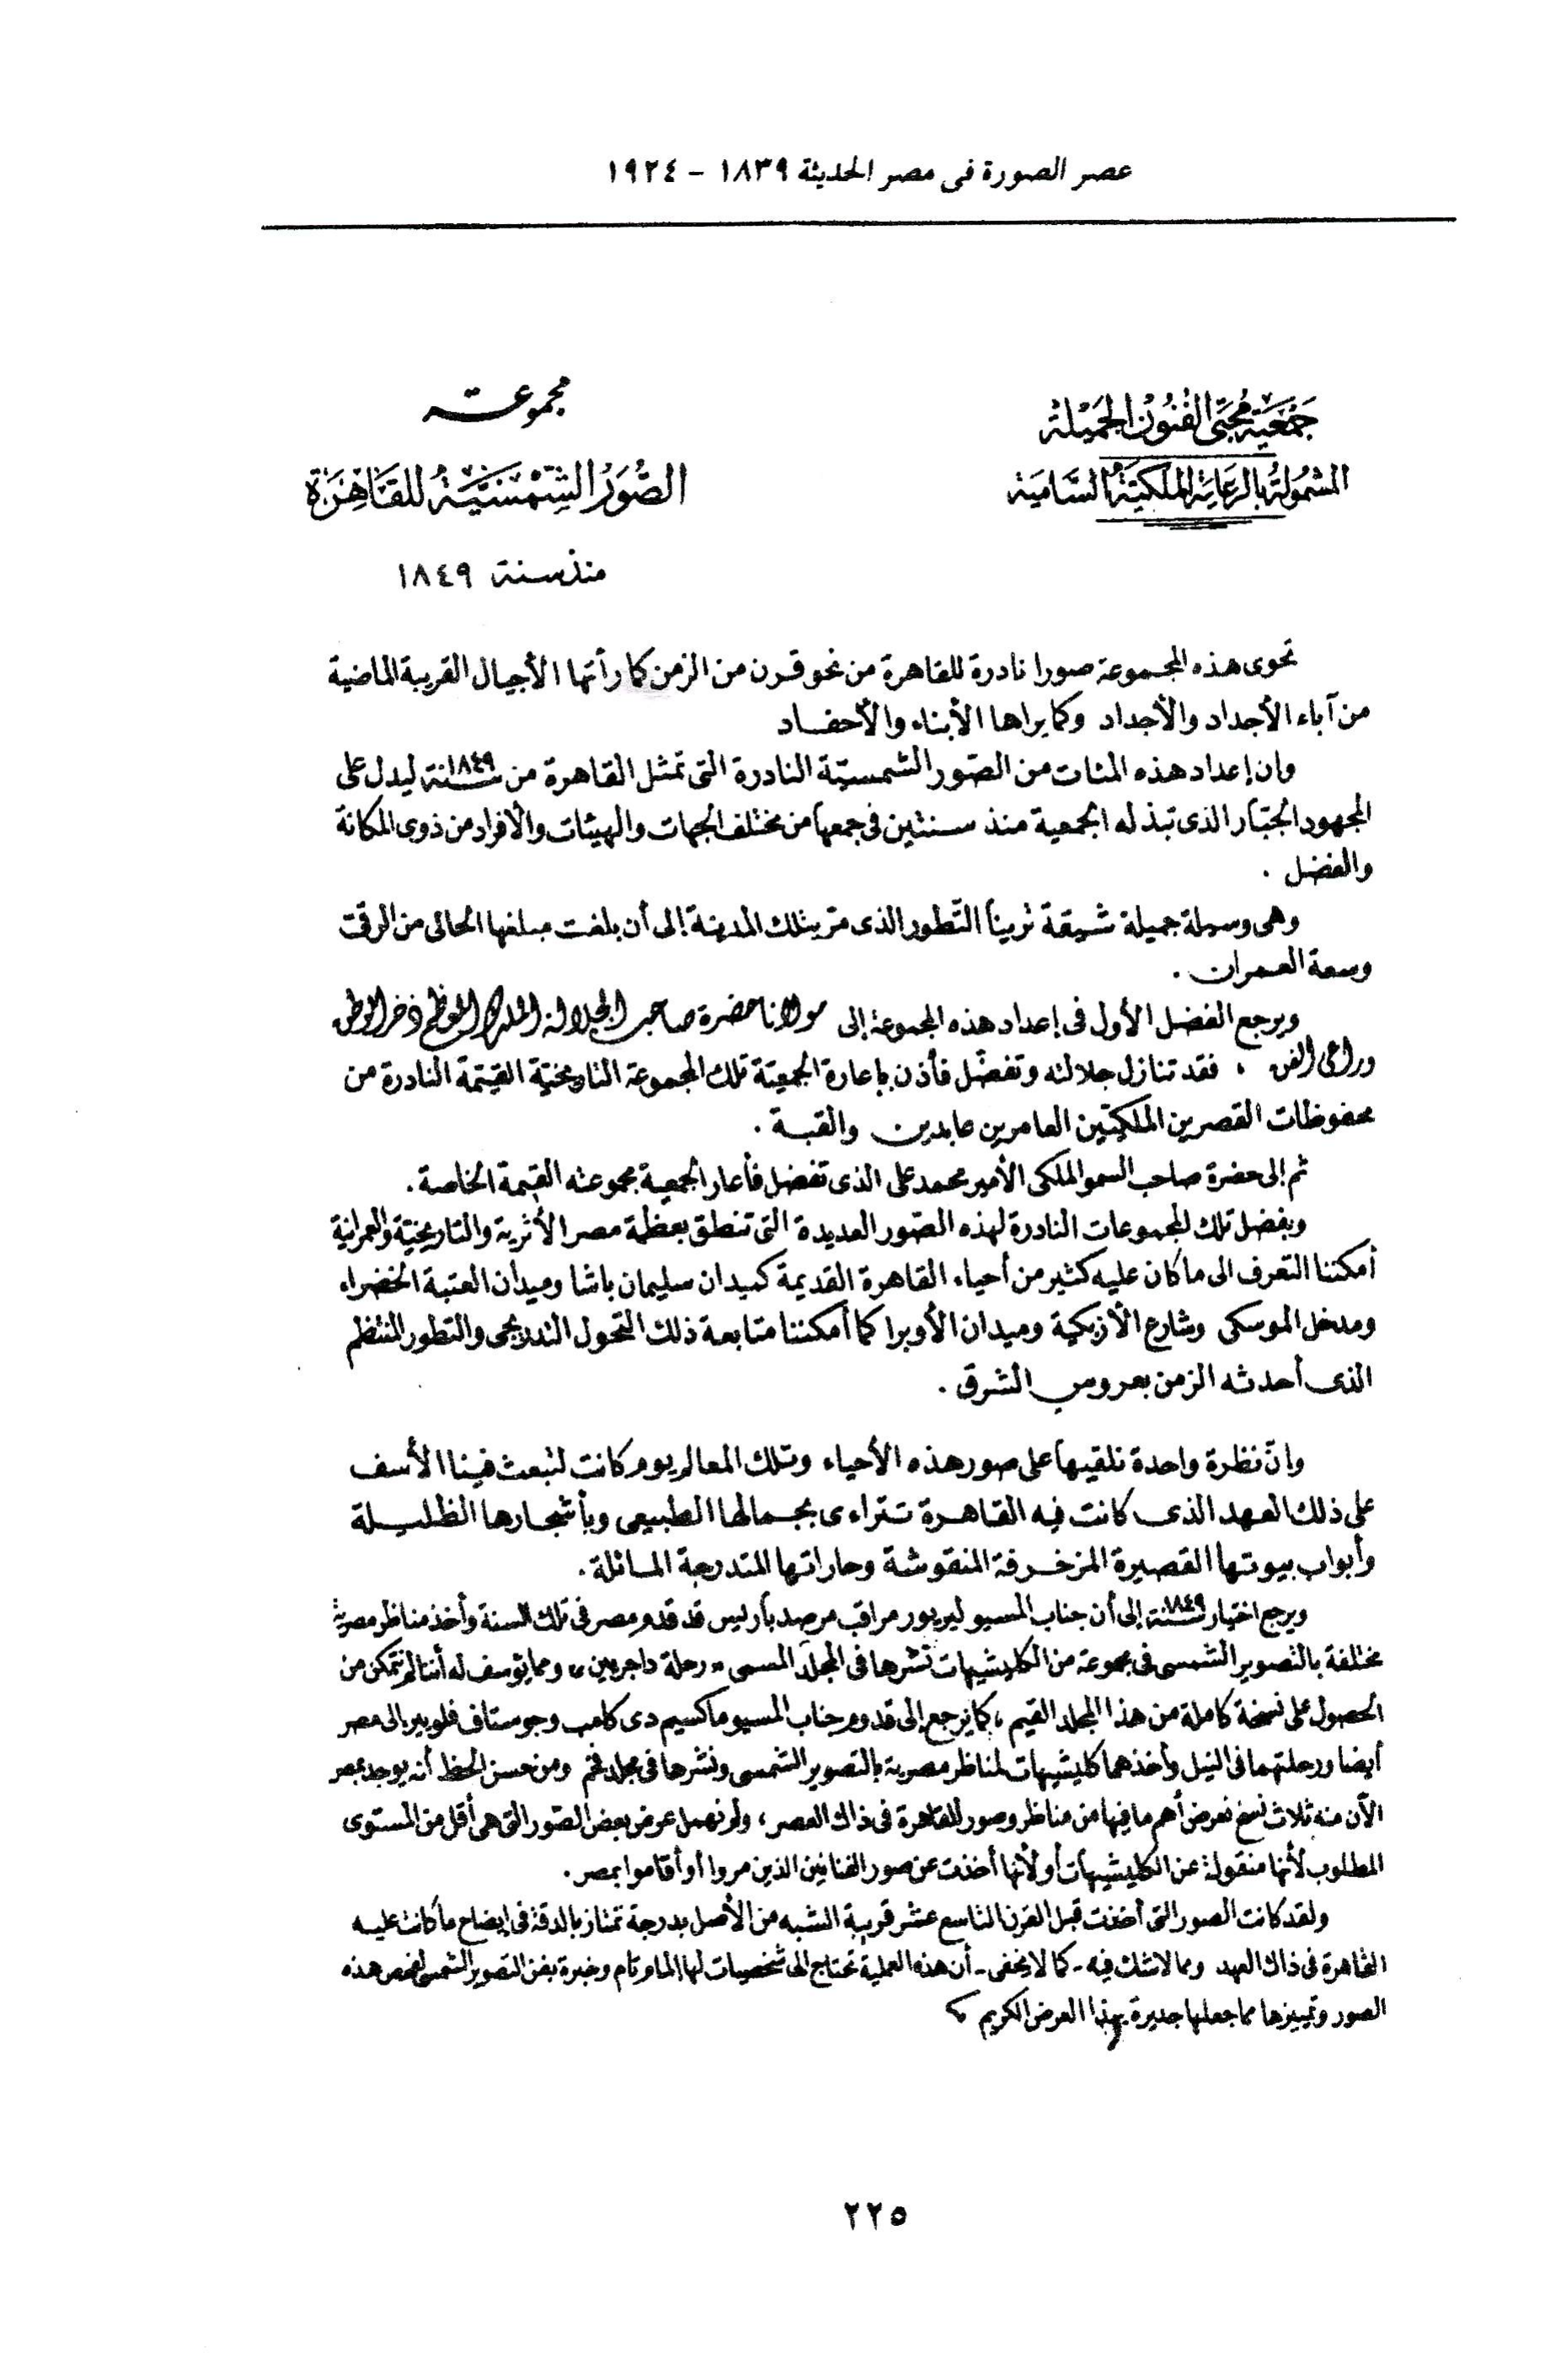 عصر الصورة فى مصر الحديثة ١٨٣٩ - ١٩٢٤
جَمْعَيَّة مُحِبِّى الفُنُوْن الجَمِيْلة
المشمُولة بالرعَاية الملَكيَّة السَّامية
مجموعة
الصُّوَرُ الشَّمْسِيَّةُ للقَاهِرَة
منذ سنة ١٨٤٩
تحوى هذه المجموعة صورا نادرة للقاهرة من نحو قرن من الزمن كما رأتها الأجيال القريبة الماضية
من آباء الأجداد والأجداد وكما يراها الأبناء والأحفاد
وان إعداد هذه المئات من الصّور الشمسيّة النادرة التى تمثل القاهرة من سنة ١٨٤٩ ليدل على
المجهود الجبّار الذى تبذله الجمعية منذ سنتين فى جمعها من مختلف الجهات والهيئات والأفراد من ذوى المكانة
والفضل .
وهى وسيلة جميلة شيقة ترينا التّطور الذى مرّ بتلك المدينة إلى أن بلغت مبلغها الحالى من الرقى
وسعة العمران .
ويرجع الفضل الأول فى إعداد هذه المجموعة إلى مولانا حضرة صاحب الجلالة الملك المعظم ذخر الوطن
وراعى الفن . فقد تنازل جلالته وتفضّل فأذن بإعارة الجمعيّة تلك المجموعة التاريخيّة القيّمة النادرة من
محفوظات القصرين الملكيّين العامرين عابدين والقبة .
ثم إلى حضرة صاحب السمو الملكى الأمير محمد على الذى تفضل فأعار الجمعية مجموعته القيمة الخاصة .
وبفضل تلك المجموعات النادرة لهذه الصّور العديدة التى تنطق بعظمة مصر الأثرية والتاريخيّة والعمرانية
أمكننا التعرف الى ما كان عليه كثير من أحياء القاهرة القديمة كميدان سليمان باشا وميدان العتبة الخضراء
ومدخل الموسكى وشارع الأزبكية وميدان الأوبرا كما أمكننا متابعة ذلك التحول التدريجى والتطور المنتظم
الذى أحدثه الزمن بعروس الشرق .
وانّ نظرة واحدة نلقيها على صور هذه الأحياء وتلك المعالم يوم كانت لتبعث فينا الأسف
على ذلك العهد الذى كانت فيه القاهرة تتراءى بجمالها الطبيعى وبأشجارها الظليلة
وأبواب بيوتها القصيرة المزخرفة المنقوشة وحاراتها المتدرجة المائلة .
ويرجع اختيار سنة ١٨٤٩ إلى أن جناب المسيو ليريور مراقب مرصد باريس قد قدم مصر فى تلك السنة وأخذ مناظر مصرية
مختلفة بالتصوير الشمسى فى مجموعة من الكليشيهات نشرها فى المجلد المسمى « رحلة داجريين » ومما يؤسف له أننا لم نتمكن من
الحصول على نسخة كاملة من هذا المجلد القيم ، كما يرجع إلى قدوم جناب المسيو ماكسيم دى كامب وجوستاف فلوبير الى مصر
أيضا ورحلتهما فى النيل وأخذهما كليشيهات لمناظر مصرية بالتصوير الشمسى ونشرها فى مجلد فخم ومن حسن الحظ أنه يوجد بمصر
الآن منه ثلاث نسخ نعرض أهم ما فيها من مناظر وصور للقاهرة فى ذاك العصر ، ولم نهمل عرض بعض الصّور التى هى أقل من المستوى
المطلوب لأنها منقولة عن الكليشيهات أو لأنها أخذت عن صور الفنانين الذين مروا أو أقاموا بمصر .
ولقد كانت الصور التى أخذت قبل القرن التاسع عشر قريبة الشبه من الأصل بدرجة تمتاز بالدقة فى إيضاح ما كانت عليه
القاهرة فى ذاك العهد ومما لا شك فيه - كما لا يخفى - أن هذه العملية تحتاج الى شخصيات لها المام تام وخبرة بفن التصوير الشمسى لفحص هذه
الصور وتمييزها مما جعلها جديرة بهذا العرض الكريم
٢٢٥